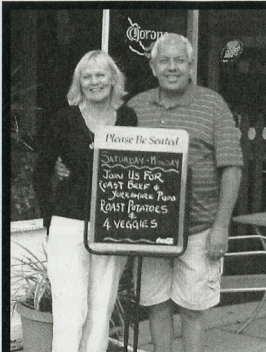 Corona
Please Be Seated
SATURDAY - MONDAY
JOIN US FOR
ROAST BEEF &
YORKSHIRE PUDS
ROAST POTATOES
&
4 VEGGIES